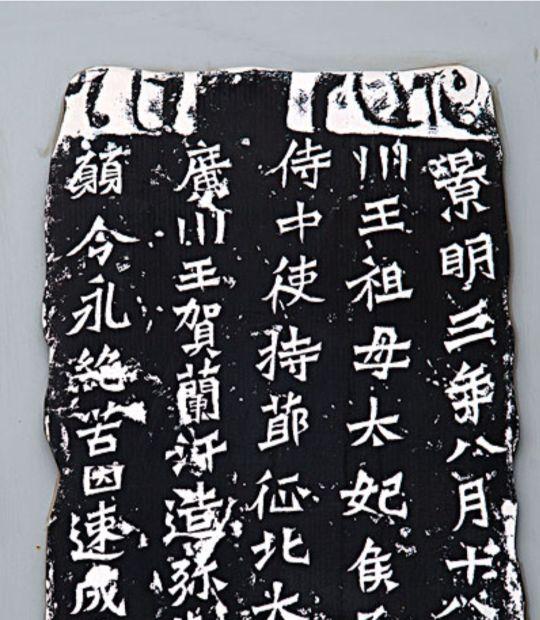 景明三年八月十八
川王祖母太妃侯
侍中使持節征北大
廣川王賀蘭汗造弥
願今永絕苦因速成